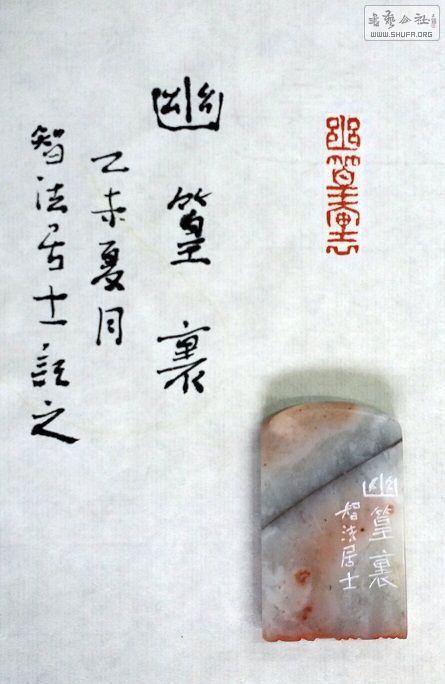 幽篁裏
乙未夏月
智法居士記之
幽篁裏
幽篁裏
智法居士
書藝公社
WWW.SHUFA.ORG